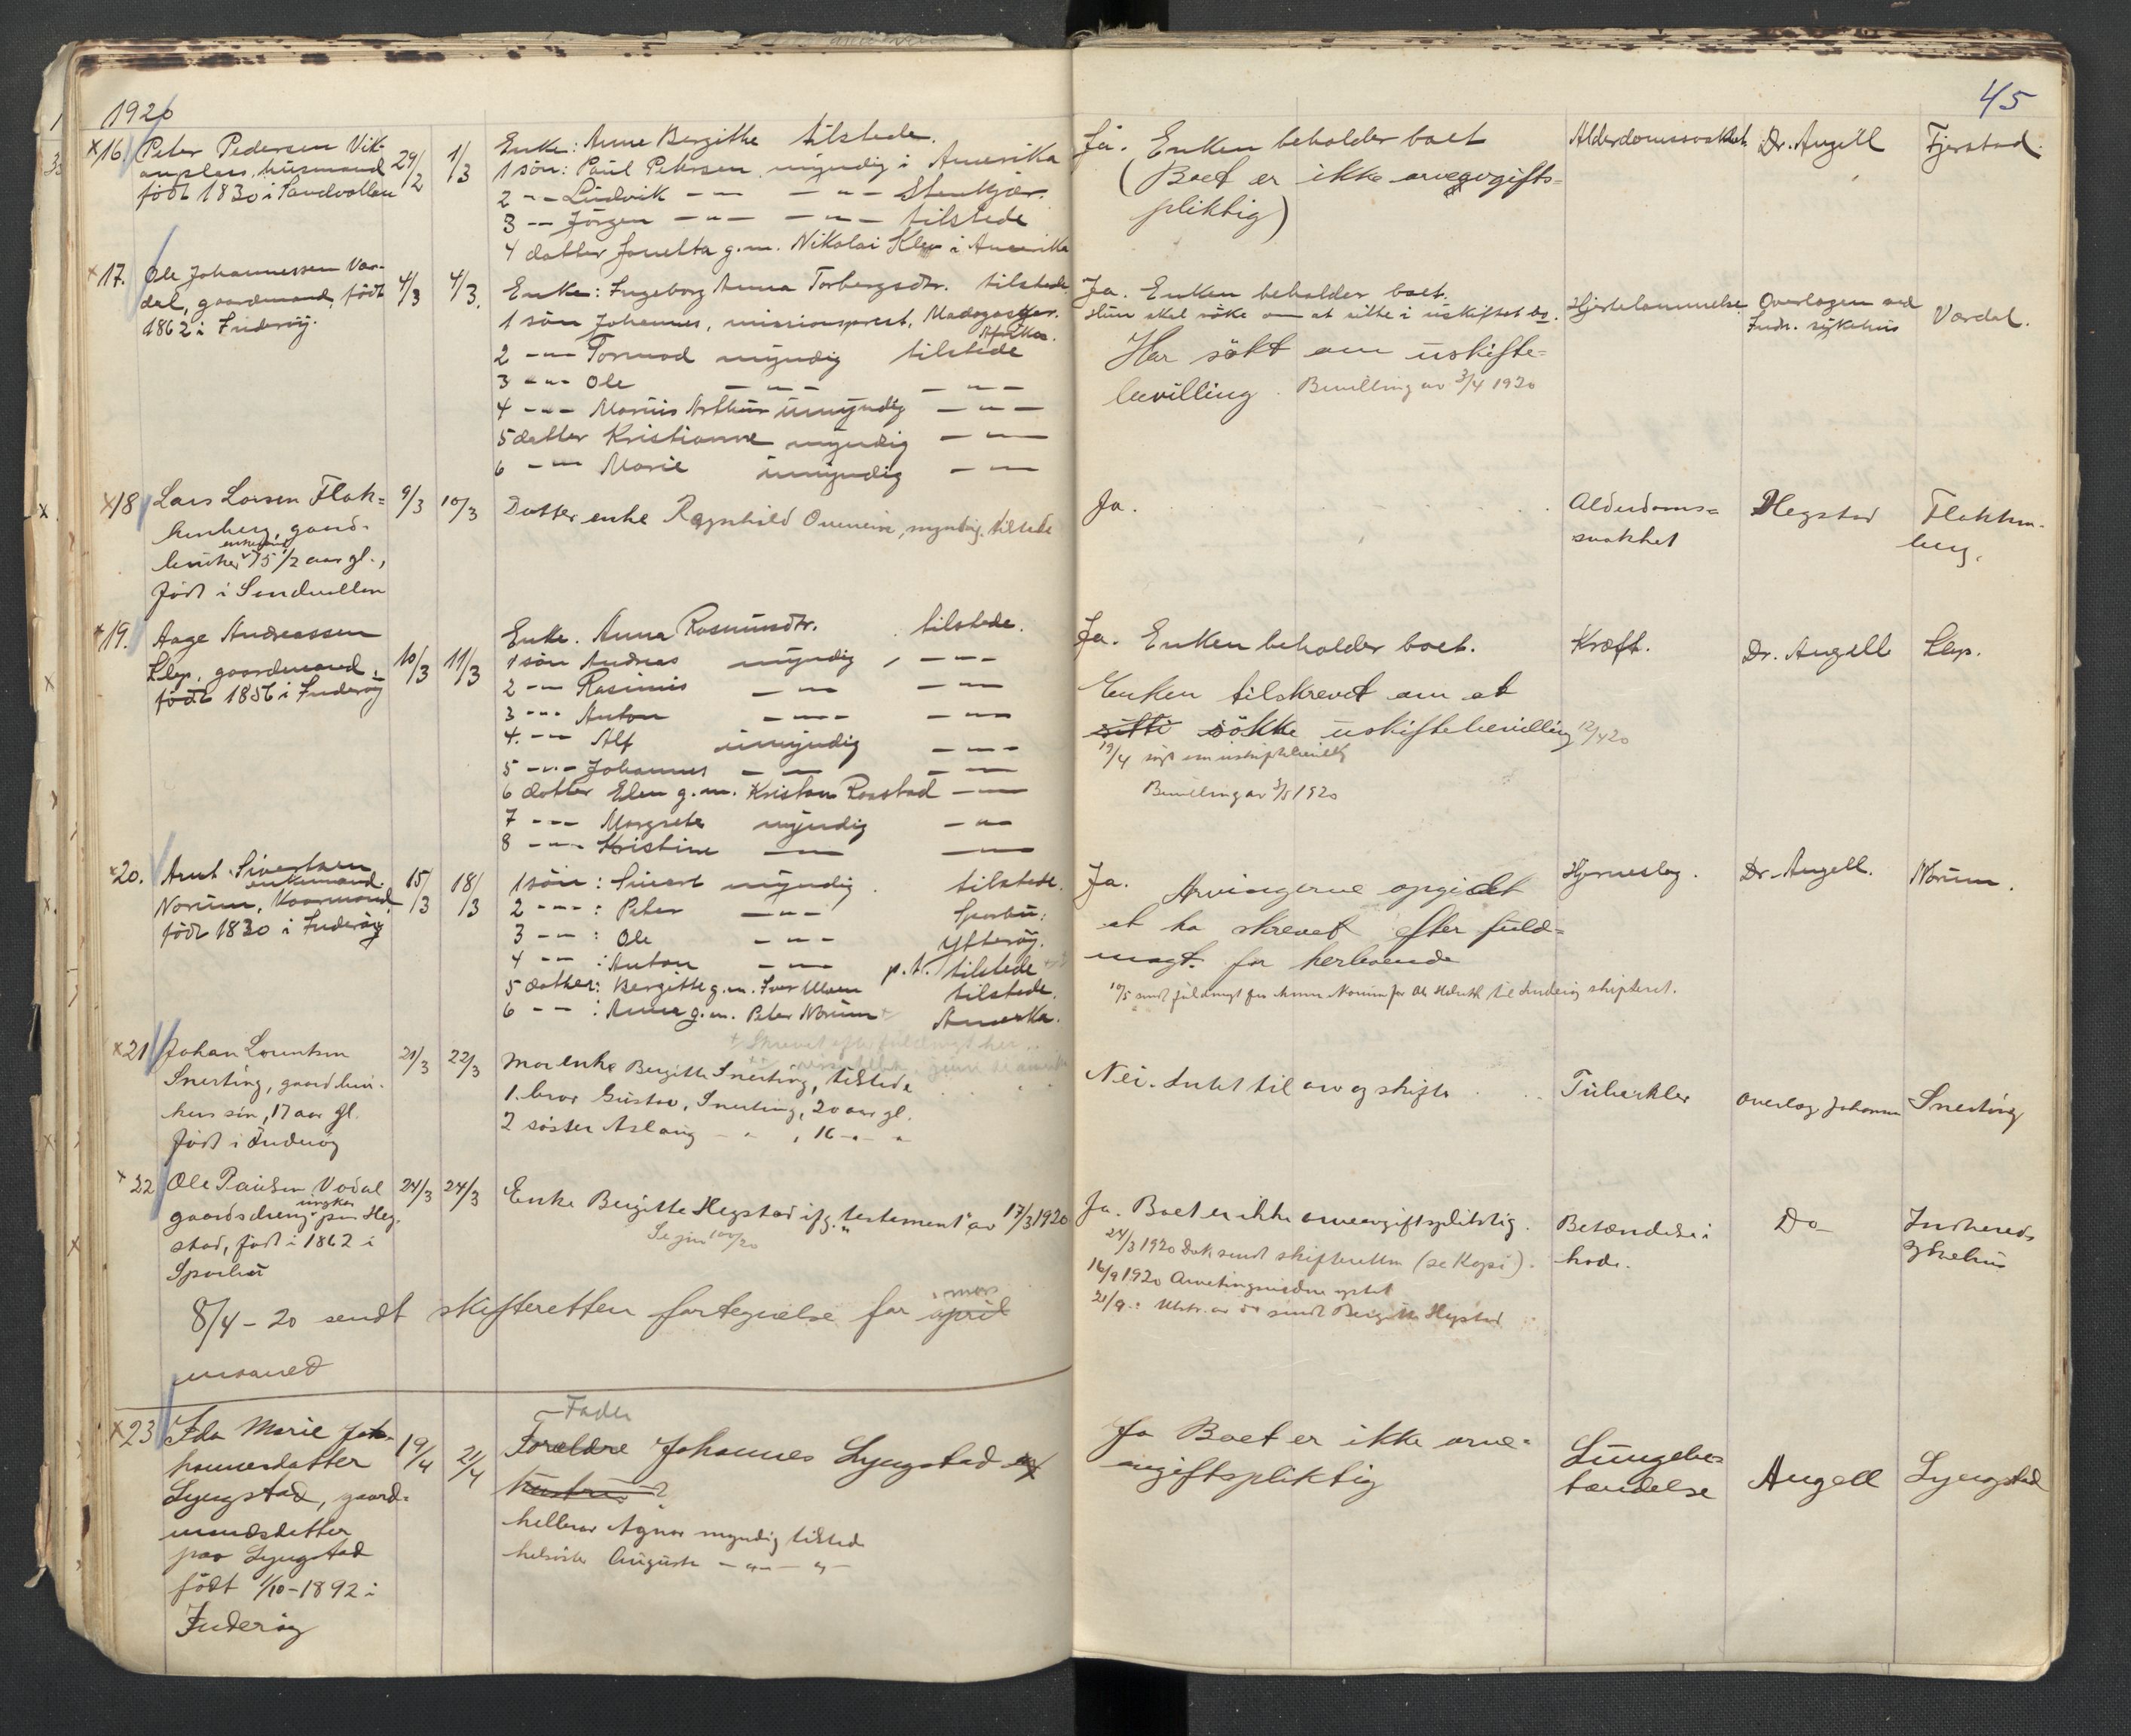 1920
45
x16. Peter Pedersen Vik-
anplass, husmand
født 1830 i Sandvollan
29/2
1/3
Enke: Anne Bergitte tilstede.
1 søn: Paul Petersen, myndig i Amerika
2 -"- Ludvik -"- -"- Stenkjær.
3 -"- Jørgen -"- -"- tilstede
4 datter Jonetta g.m. Nikolai Klev i Amerika
Ja. Enken beholder boet
(Boet er ikke arveavgifts=
pliktig)
Alderdomssvakhet
Dr. Angell
Fjerstad.
x17. Ole Johannessen Vær-
dal, gaardmand, født
1862 i Inderøy.
4/3
4/3.
Enke: Ingeborg Anna Torbergsdtr. tilstede
1 søn Johannes, missionsprest, Madagaskar.
Afrika.
2 -"- Tormod myndig tilstede
3 -"- Ole -"- -"-
4 -"- Marius Arthur umyndig -"-
5 datter Kristianne myndig -"-
6 -"- Marie umyndig -"-
Ja. Enken beholder boet.
Hun skal søke om at sitte i uskiftet bo.
Har søkt om uskifte=
bevilling. Bevilling av 3/4 1920
Hjertelammelse
Overlægen ved
Indr. sykehus
Værdal.
x18 Lars Larsen Flak=
kenberg, gaard-
bruker enkemand 75 1/2 aar gl.,
født i Sandvollan
9/3
10/3
Datter enke Ragnhild , myndig, tilstede
Ja.
Alderdoms=
svakhet
Hegstad
Flakken-
berg.
x19. Aage Andreassen
Klep, gaardmand,
født 1856 i Inderøy
10/3
11/3
Enke. Anna Rasmusdtr. tilstede.
1 søn Andreas myndig, -"-
2 -"- Rasmus -"- -"-
3 -"- Anton -"- -"-
4. -"- Alf umyndig -"-
5 -"- Johannes -"- -"-
6 datter Elen g.m. Kristen Rostad -"-
7 -"- Margrete myndig -"-
8 -"- Kristine -"- -"-
Ja. Enken beholder boet.
Enken tilskrevet om at
sitte søkke uskiftebevilling 12/4 20
19/4 søgt om uskiftebevillg
Bevilling av 3/5 1920
Kræft.
Dr. Angell
Klep.
x20. Arnt Sivertsen
enkemand
Norum, kaarmand,
født 1830 i Inderøy
15/3
18/3
1 søn: Sivert myndig. tilstede.
2 -"-: Peter -"- Sparbu.
3 -"-: Ole -"- Ytterøy.
4 -"-: Anton -"- p.t. tilstede
5 datter: Bergitte g.m. Iver Ulven tilstede.
6 -"-: Anna g.m. Peter Norum + Amerika.
+ Skrevet efter fuldmagt her
Ja. Arvingerne opgivet
at ha skrevet efter fuld=
magt. for herboende
10/5 sendt fuldmagt fra Anna Norum for Ole til Inderøy skifteret.
Hjerneslag.
Dr. Angell.
Norum.
x21 Johan Lorentsen
Snerting, gaardbru-
kers søn, 17 aar gl.
født i Inderøy
21/3
22/3
Mor enke Bergitte Snerting, tilstede
1. bror Gustav, Snerting, 20 aar gl.
2 søster Aslaug -"-, 16 -"- "
Nei. Intet til arv og skifte
Tuberkler
Overlæg Johansen
Snerting
x22 Ole Paulsen Vodal
ungkar
gaardsdreng paa Heg-
stad, født i 1862 i
Sparbu
24/3
24/3
Enke Bergitte Hegstad ifg. "testament" av 17/3 1920
Ja. Boet er ikke arveavgiftspliktig.
24/3 1920 Dok sendt skifteretten (se Kopi).
16/9 1920 Arvetingsvidne
21/9: Utskr. av do sendt Bergitte Hegstad
Betændelse i
hode.
Do
Indhereds
sykehus
8/4 - 20 sendt skifteretten fortegnelse for april mars
maaned
x23 Ida Marie Jo-
hannesdatter
Lyngstad, gaard-
mandsdatter
paa Lyngstad
født 1/10-1892 i
Inderøy
19/4
21/4
Fader
Forældre Johannes Lyngstad og
hustru ?
helbror Agnar myndig tilstede
helsøster Augusta -"- -"-
Ja Boet er ikke arve-
avgiftspliktig
Lungebe=
tændelse
Angell
Lyngstad